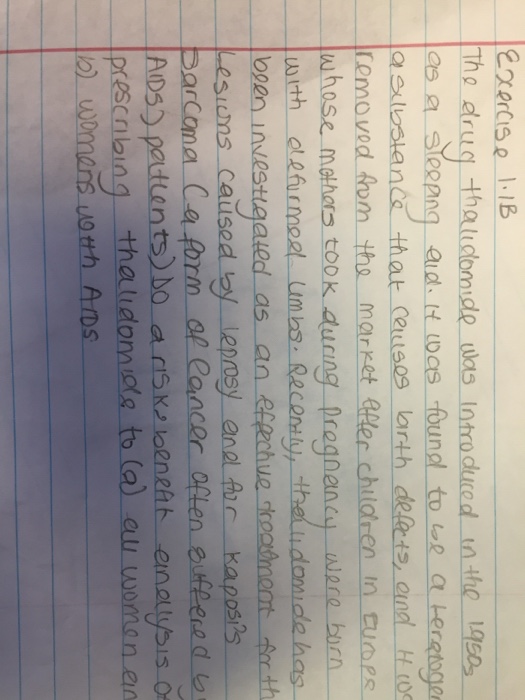 Exercise 1.1B
The drug thalidomide was introduced in the 1950s
as a sleeping aid. It was found to be a teratog
a substance that causes birth defects, and it wa
removed from the market after children in Europe
whose mothers took during pregnancy were born
with deformed limbs. Recently, thalidomide has
been investigated as an effective treatment for th
Lesions caused by leprosy and for Kaposi's
Sarcoma (a form of cancer often suffered by
AIDS) patients) Do a risk-benefit analysis o
prescribing thalidomide to (a) all women an
b) womens with AIDS